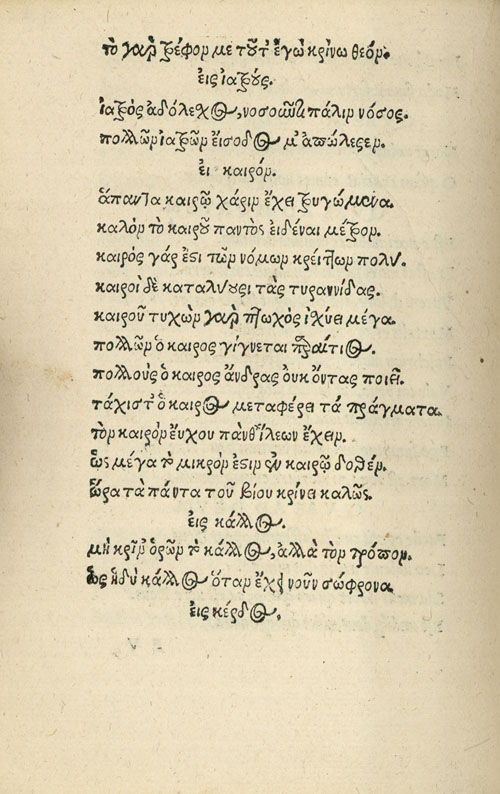 τὸ γὰρ τρέφον με τοῦτ' ἐγὼ κρίνω θεόν.
εἰς ἰατρούς.
ἰατρὸς ἀδόλεσχος, νοσοῦντι πάλιν νόσος.
πολλῶν ἰατρῶν εἴσοδος μ' ἀπώλεσεν.
εἰ καιρόν.
ἅπαντα καιρῷ χάριν ἔχει τρυγώμενα.
καλὸν τὸ καιροῦ παντὸς εἰδέναι μέτρον.
καιρὸς γάρ ἐστι τῶν νόμων κρείττων πολύ.
καιροὶ δὲ καταλύουσι τὰς τυραννίδας.
καιροῦ τυχὼν γὰρ πτωχὸς ἰχύει μέγα.
πολλῶν ὁ καιρος γίγνεται παραίτιος.
πολλοὺς ὁ καιρος ἄνδρας οὐκ ὄντας ποιεῖ.
τάχιστ' ὁ καιρὸς μεταφέρει τὰ πράγματα.
τὸν καιρὸν εὔχου πάνθ' ἵλεων ἔχειν.
ὡς μέγα τὸ μικρόν ἐστιν ἐν καιρῷ δοθέν.
ὥρα τὰ πάντα τοῦ βίου κρίνει καλῶς.
εἰς κάλλος.
μὴ κρῖν' ὁρῶν τὸ κάλλος, ἀλλὰ τὸν τρόπον.
ὡς ἡδὺ κάλλος ὅταν ἔχῃ νοῦν σώφρονα.
εἰς κέρδος.